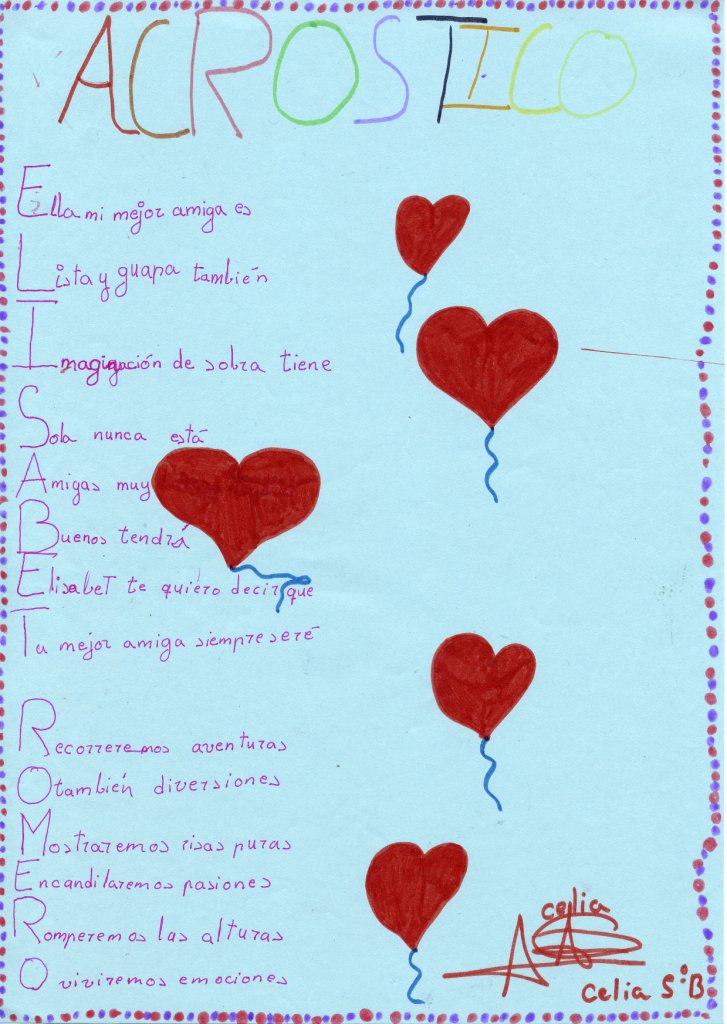 ACROSTICO
Ella mi mejor amiga es
Lista y guapa también
Imaginación de sobra tiene
Sola nunca está
Amigas muy
Buenos tendrá
Elisabet te quiero decir que
Tu mejor amiga siempre seré
Recorreremos aventuras
O también diversiones
Mostraremos risas puras
Encandilaremos pasiones
Romperemos las alturas
O viviremos emociones
celia
Celia 5ºB